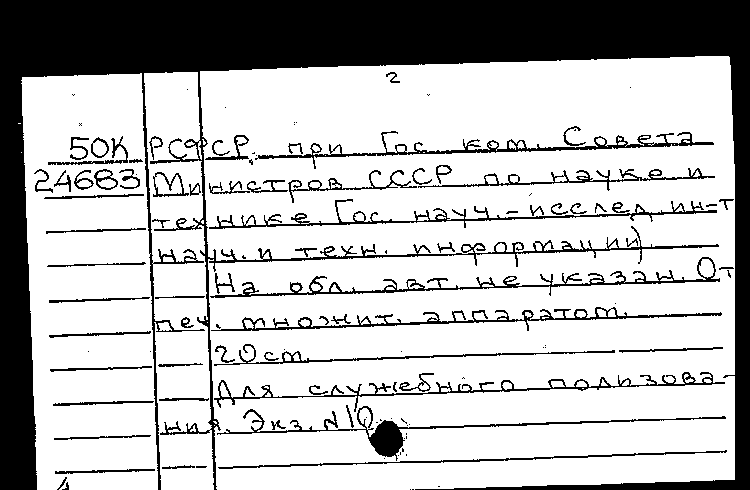 2
50К РСФСР, при Гос. ком. Совета
24683 Министров СССР по науке и
технике. Гос. науч.-исслед. ин-т
науч. и техн. информации).
На обл. авт. не указан. От
печ. множит. аппаратом.
20 см.
Для служебного пользова-
ния. Экз. №10